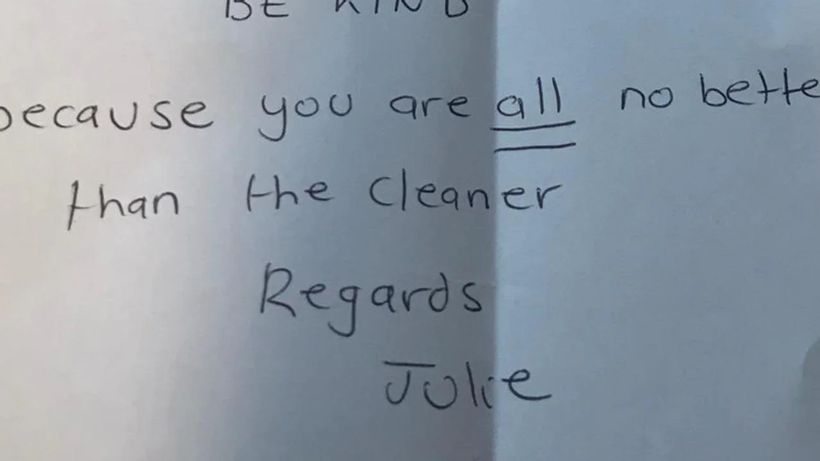 BE KIND
because you are all no bette
than the cleaner
Regards
Julie